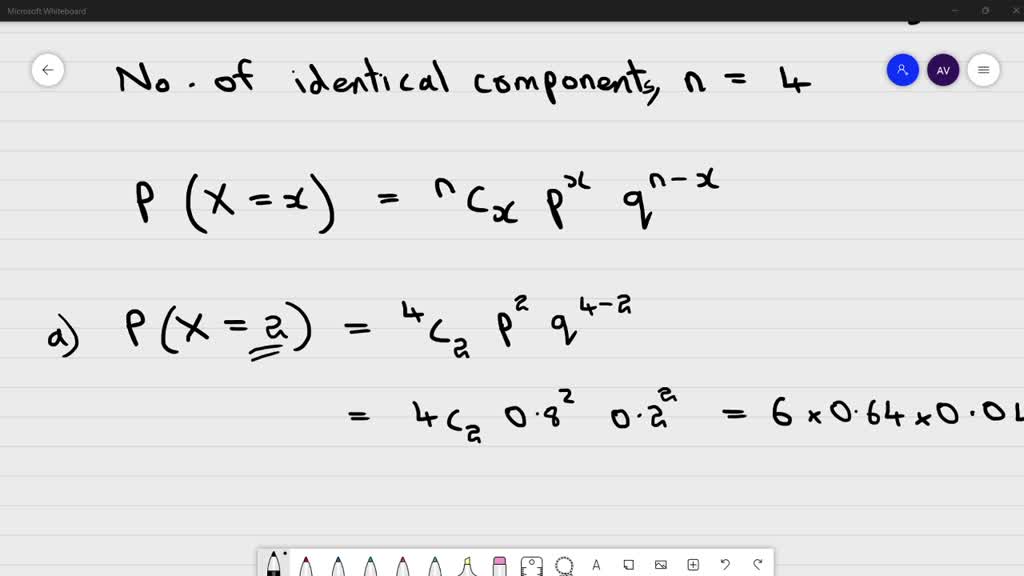 Microsoft Whiteboard
No. of identical components, n = 4
AV
P (X = x) = ⁿCₓ pˣ qⁿ⁻ˣ
a) P(X = 2) = ⁴C₂ p² q⁴⁻²
= 4C₂ 0.8² 0.2² = 6 × 0.64 × 0.04
A